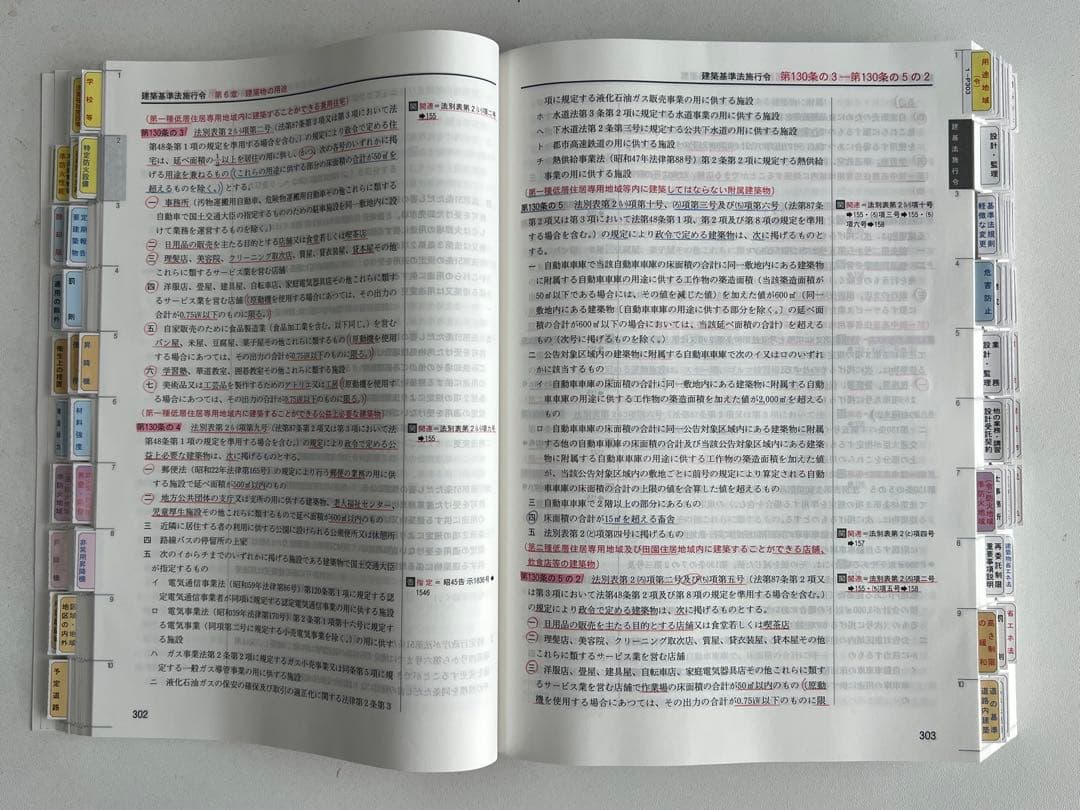 建築基準法施行令 第6章 建築物の用途
(第一種低層住居専用地域内に建築することができる兼用住宅)
第130条の3 法別表第2(い)項第二号(法第87条第2項又は第3項において法
第48条第1項の規定を準用する場合を含む。)の規定により政令で定める住
宅は、延べ面積の1/2以上を居住の用に供し、かつ、次の各号のいずれかに掲
げる用途を兼ねるもの(これらの用途に供する部分の床面積の合計が50㎡を
超えるものを除く。)とする。
一 事務所(汚物運搬用自動車、危険物運搬用自動車その他これらに類する
自動車で国土交通大臣の指定するもののための駐車施設を同一敷地内に設
けて業務を運営するものを除く。)
二 日用品の販売を主たる目的とする店舗又は食堂若しくは喫茶店
三 理髪店、美容院、クリーニング取次店、質屋、貸衣装屋、貸本屋その他
これらに類するサービス業を営む店舗
四 洋服店、畳屋、建具屋、自転車店、家庭電気器具店その他これらに類す
るサービス業を営む店舗(原動機を使用する場合にあつては、その出力の
合計が0.75kW以下のものに限る。)
五 自家販売のために食品製造業(食品加工業を含む。以下同じ。)を営む
パン屋、米屋、豆腐屋、菓子屋その他これらに類するもの(原動機を使用
する場合にあつては、その出力の合計が0.75kW以下のものに限る。)
六 学習塾、華道教室、囲碁教室その他これらに類する施設
七 美術品又は工芸品を製作するためのアトリエ又は工房(原動機を使用す
る場合にあつては、その出力の合計が0.75kW以下のものに限る。)
(第一種低層住居専用地域内に建築することができる公益上必要な建築物)
第130条の4 法別表第2(い)項第九号(法第87条第2項又は第3項において法
第48条第1項の規定を準用する場合を含む。)の規定により政令で定める公
益上必要な建築物は、次に掲げるものとする。
一 郵便法(昭和22年法律第165号)の規定により行う郵便の業務の用に供
する施設で延べ面積が500㎡以内のもの
二 地方公共団体の支庁又は支所の用に供する建築物、老人福祉センター、
児童厚生施設その他これらに類するもので延べ面積が600㎡以内のもの
三 近隣に居住する者の利用に供する公園に設けられる公衆便所又は休憩所
四 路線バスの停留所の上家
五 次のイからチまでのいずれかに掲げる施設である建築物で国土交通大臣
が指定するもの
イ 電気通信事業法(昭和59年法律第86号)第120条第1項に規定する認
定電気通信事業者が同項に規定する認定電気通信事業の用に供する施設
ロ 電気事業法(昭和39年法律第170号)第2条第1項第十六号に規定す
る電気事業(同項第二号に規定する小売電気事業を除く。)の用に供す
る施設
ハ ガス事業法第2条第2項に規定するガス小売事業又は同条第5項に規
定する一般ガス導管事業の用に供する施設
ニ 液化石油ガスの保安の確保及び取引の適正化に関する法律第2条第3
関連=法別表第2(い)項二号
➡155
関連=法別表第2(い)項九号
➡155
告 指定=昭45告示1836号●
1546
302
建築基準法施行令 第130条の3―第130条の5の2
項に規定する液化石油ガス販売事業の用に供する施設
ホ 水道法第3条第2項に規定する水道事業の用に供する施設
ヘ 下水道法第2条第三号に規定する公共下水道の用に供する施設
ト 都市高速鉄道の用に供する施設
チ 熱供給事業法(昭和47年法律第88号)第2条第2項に規定する熱供給
事業の用に供する施設
(第一種低層住居専用地域等内に建築してはならない附属建築物)
第130条の5 法別表第2(い)項第十号、(ろ)項第三号及び(ち)項第六号(法第87条
第2項又は第3項において法第48条第1項、第2項及び第8項の規定を準用
する場合を含む。)の規定により政令で定める建築物は、次に掲げるものと
する。
一 自動車車庫で当該自動車車庫の床面積の合計に同一敷地内にある建築物
に附属する自動車車庫の用途に供する工作物の築造面積(当該築造面積が
50㎡以下である場合には、その値を減じた値)を加えた値が600㎡(同一
敷地内にある建築物(自動車車庫の用途に供する部分を除く。)の延べ面
積の合計が600㎡以下の場合においては、当該延べ面積の合計)を超える
もの(次号に掲げるものを除く。)
二 公告対象区域内の建築物に附属する自動車車庫で次のイ又はロのいずれ
かに該当するもの
イ 自動車車庫の床面積の合計に同一敷地内にある建築物に附属する自動
車車庫の用途に供する工作物の築造面積を加えた値が2,000㎡を超える
もの
ロ 自動車車庫の床面積の合計に同一公告対象区域内にある建築物に附属
する他の自動車車庫の床面積の合計及び当該公告対象区域内にある建築
物に附属する自動車車庫の用途に供する工作物の築造面積を加えた値
が、当該公告対象区域内の敷地ごとに前号の規定により算定される自動
車車庫の床面積の合計の上限の値を合算した値を超えるもの
三 自動車車庫で2階以上の部分にあるもの
四 床面積の合計が15㎡を超える畜舎
五 法別表第2(と)項第四号に掲げるもの
(第二種低層住居専用地域及び田園住居地域内に建築することができる店舗、
飲食店等の建築物)
第130条の5の2 法別表第2(ろ)項第二号及び(ち)項第五号(法第87条第2項又
は第3項において法第48条第2項及び第8項の規定を準用する場合を含む。)
の規定により政令で定める建築物は、次に掲げるものとする。
一 日用品の販売を主たる目的とする店舗又は食堂若しくは喫茶店
二 理髪店、美容院、クリーニング取次店、質屋、貸衣装屋、貸本屋その他
これらに類するサービス業を営む店舗
三 洋服店、畳屋、建具屋、自転車店、家庭電気器具店その他これらに類す
るサービス業を営む店舗で作業場の床面積の合計が50㎡以内のもの(原動
機を使用する場合にあつては、その出力の合計が0.75kW以下のものに限
関連=法別表第2(い)項十号
➡155・(ろ)項三号➡155・(ち)
項六号➡158
関連=法別表第2(と)項四号
➡157
関連=法別表第2(ろ)項二号
➡155・(ち)項五号➡158
303
学校等
特定防火設備
定期報告
要建築物
罰則
適用の除外
昇降機
材料強度
非常用昇降機
区域・地域
地区の内外
予定道路
用途地域(令)
1→P303
建基法施行令
設計・監理
基準法規則
軽微な変更
危害防止
業務
設計・監理
他の業務・講習
設計受託契約
(令)防火地域
準防火地域
再委託制限
重要事項説明
省エネ法
高さ制限の緩和
罰則
道の基準
道路内建築